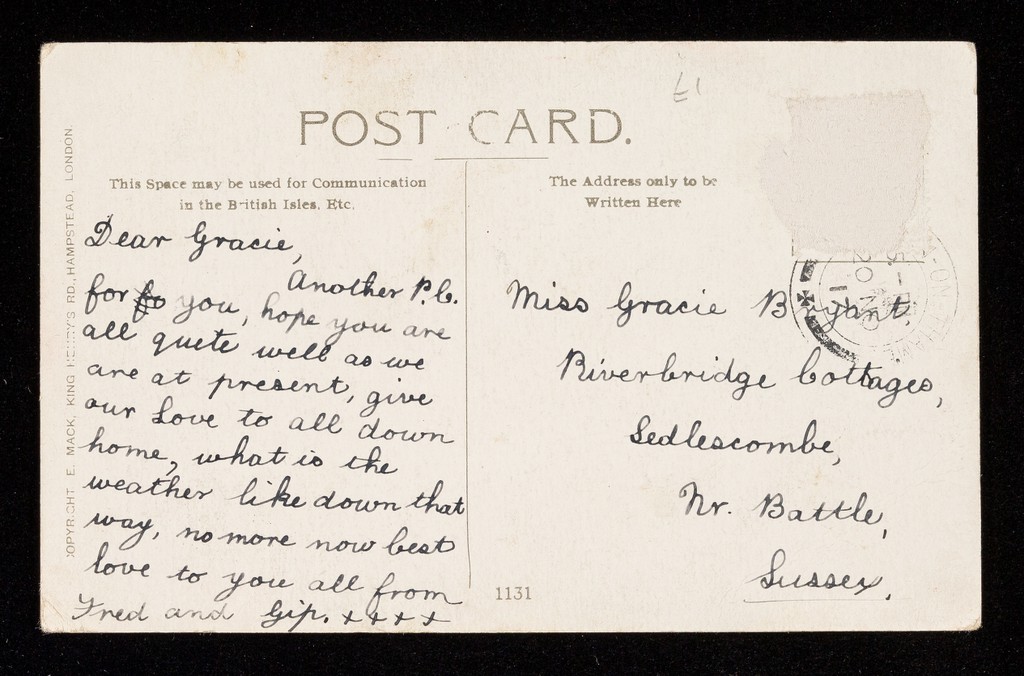 £1
POST CARD.
This Space may be used for Communication
in the British Isles, Etc.
The Address only to be
Written Here
COPYRIGHT E. MACK, KING HENRY'S RD., HAMPSTEAD, LONDON.
Dear Gracie,
Another P.C.
for you, hope you are
all quete well as we
are at present, give
our Love to all down
home, what is the
weather like down that
way, no more now best
love to you all from
Fred and Gip. x x x x
Miss Gracie Bryant,
Riverbridge Cottages,
Sedlescombe,
Nr. Battle,
Sussex.
1131